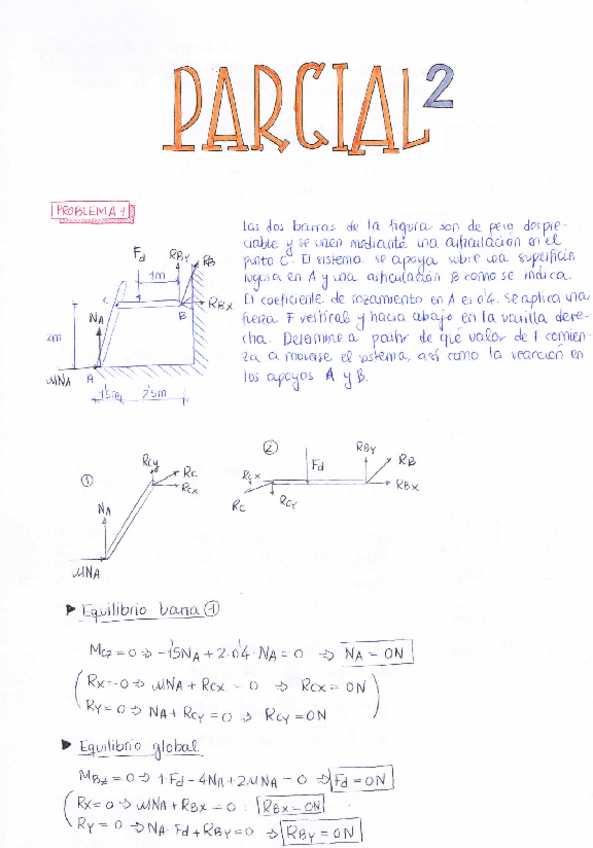 PARCIAL 2
PROBLEMA 1
Las dos barras de la figura son de peso despre-
ciable y se unen mediante una articulación en el
punto C. El sistema se apoya sobre una superficie
rugosa en A y una articulación B como se indica.
El coeficiente de rozamiento en A es 0'4. Se aplica una
fuerza F vertical y hacia abajo en la varilla dere-
cha. Determine a partir de qué valor de F comien-
za a moverse el sistema, así como la reacción en
los apoyos A y B.
Fd
RBY
RB
1m
C
B
RBX
NA
2m
μNA
A
1'5m
2'5m
①
RCY
RC
RCX
NA
μNA
②
Fd
RBY
RB
RCX
RBX
RC
RCY
► Equilibrio barra ①
MCz = 0 => -1'5NA + 2·0'4·NA = 0 => NA = 0N
RX = 0 => μNA + RCX = 0 => RCX = 0N
RY = 0 => NA + RCY = 0 => RCY = 0N
► Equilibrio global
MBz = 0 => 1·Fd - 4NA + 2μNA = 0 => Fd = 0N
RX = 0 => μNA + RBX = 0 : RBX = 0N
RY = 0 => NA - Fd + RBY = 0 => RBY = 0N